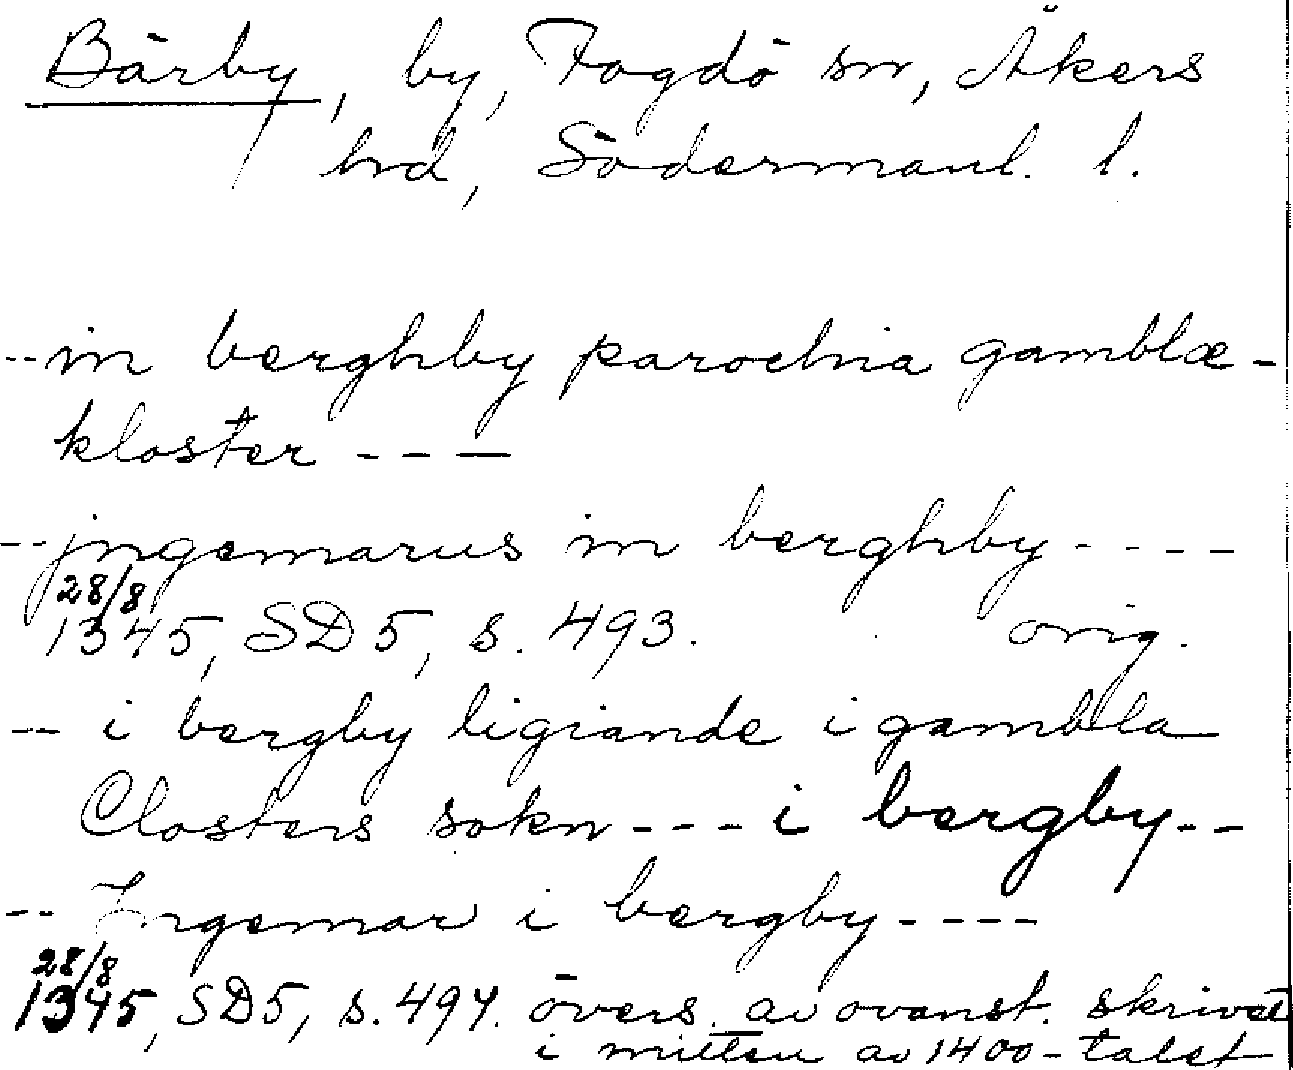 Bärby, by, Fogdö sn, Åkers
hd, Södermanl. l.
-- in berghby parochia gamblæ-
kloster ---
-- jngemarus in berghby ----
28/8
1345, SD 5, s. 493. orig.
-- i bergby ligiande i gambla
Closters sokn --- i bergby --
-- Ingemar i bergby ----
28/8
1345, SD 5, s. 494. övers. av ovanst. skrivet
i mitten av 1400-talet